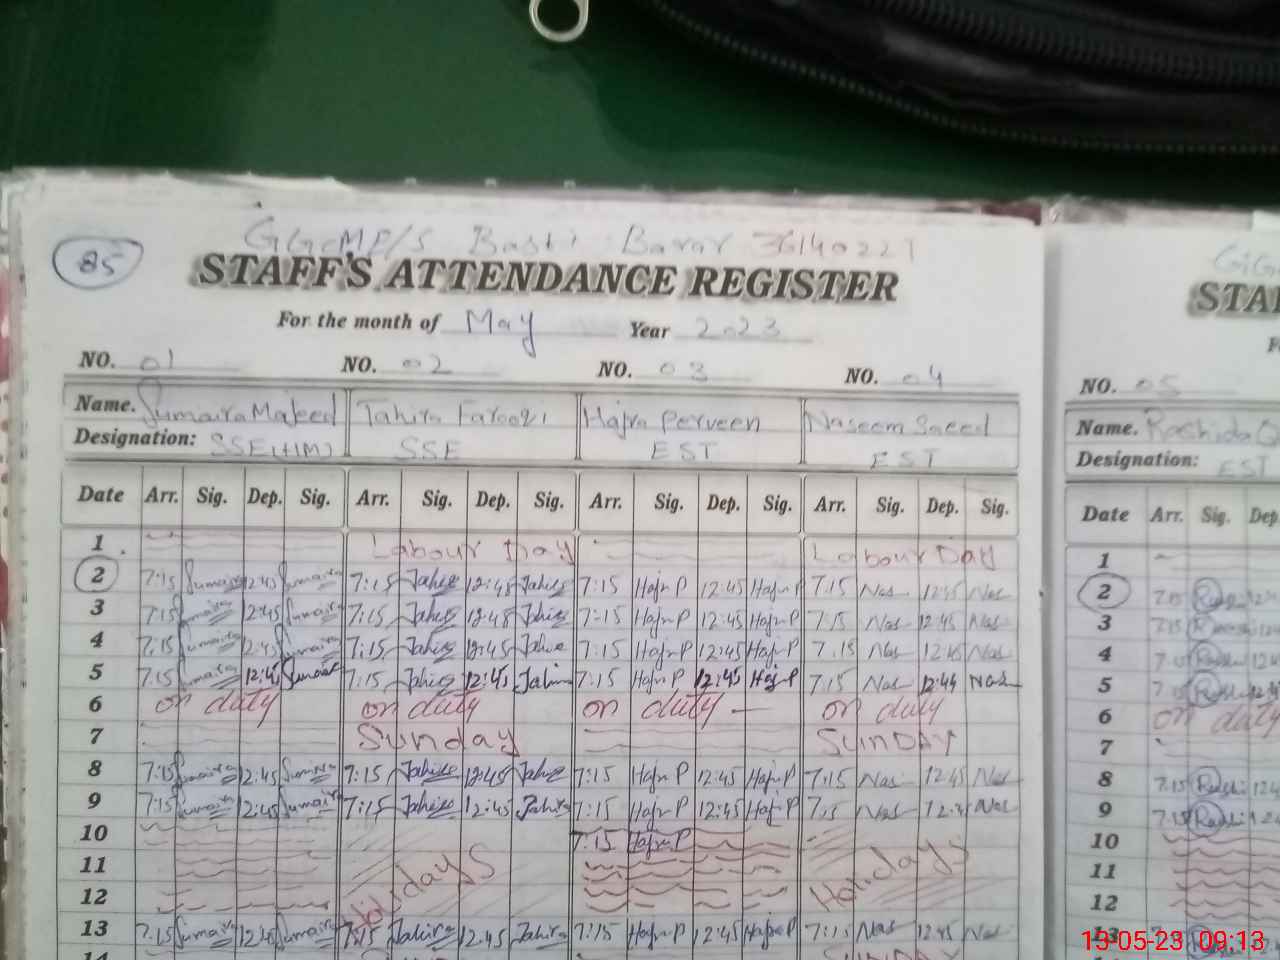 85
GGCMP/S Basti Barar 36140221
STAFF'S ATTENDANCE REGISTER
For the month of May Year 2023
NO. 01 NO. 02 NO. 03 NO. 04
Name. Sumaira Majeed Tahira Farooqi Hajra Perveen Naseem Saeed
Designation: SSE(HM) SSE EST EST
Date Arr. Sig. Dep. Sig. Arr. Sig. Dep. Sig. Arr. Sig. Dep. Sig. Arr. Sig. Dep. Sig.
1 Labour Day Labour Day
2 7:15 Sumaira 12:45 Sumaira 7:15 Tahira 12:45 Tahira 7:15 Hajra P 12:45 Hajra P 7:15 Nas 12:45 Nas
3 7:15 Sumaira 12:45 Sumaira 7:15 Tahira 12:45 Tahira 7:15 Hajra P 12:45 Hajra P 7:15 Nas 12:45 Nas
4 7:15 Sumaira 12:45 Sumaira 7:15 Tahira 12:45 Tahira 7:15 Hajra P 12:45 Hajra P 7:15 Nas 12:45 Nas
5 7:15 Sumaira 12:45 Sumaira 7:15 Tahira 12:45 Tahira 7:15 Hajra P 12:45 Hajra P 7:15 Nas 12:44 Nas
6 on duty on duty on duty on duty
7 Sunday SUNDAY
8 7:15 Sumaira 12:45 Sumaira 7:15 Tahira 12:45 Tahira 7:15 Hajra P 12:45 Hajra P 7:15 Nas 12:45 Nas
9 7:15 Sumaira 12:45 Sumaira 7:15 Tahira 12:45 Tahira 7:15 Hajra P 12:45 Hajra P 7:15 Nas Nas
10 7:15 Hajra P
11 Holidays Holidays
12
13 7:15 Sumaira 12:45 Sumaira 7:15 Tahira 12:45 Tahira 7:15 Hajra P 12:45 Hajra P 7:15 Nas 12:45 Nas
14
STA
NO. 05
Name. Rashida
Designation: EST
Date Arr. Sig. Dep
1
2 7:15
3 7:15
4
5 7:15
6 on duty
7
8 7:15
9 7:15
10
11
12
13
13-05-23 09:13